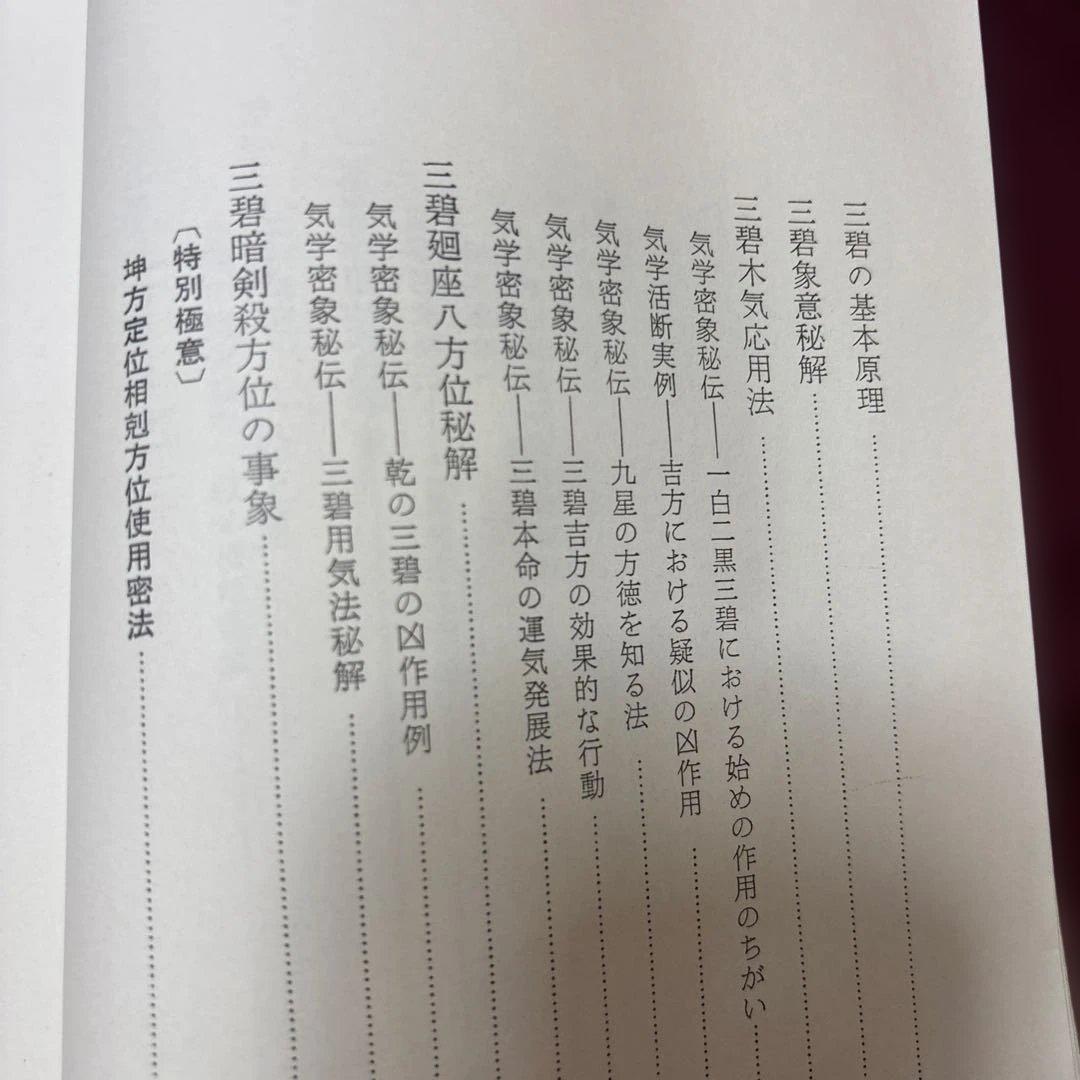 三碧の基本原理
三碧象意秘解
三碧木気応用法
気学密象秘伝――一白二黒三碧における始めの作用のちがい
気学活断実例――吉方における疑似の凶作用
気学密象秘伝――九星の方徳を知る法
気学密象秘伝――三碧吉方の効果的な行動
気学密象秘伝――三碧本命の運気発展法
三碧廻座八方位秘解
気学密象秘伝――乾の三碧の凶作用例
気学密象秘伝――三碧用気法秘解
三碧暗剣殺方位の事象
〔特別極意〕
坤方定位相剋方位使用密法